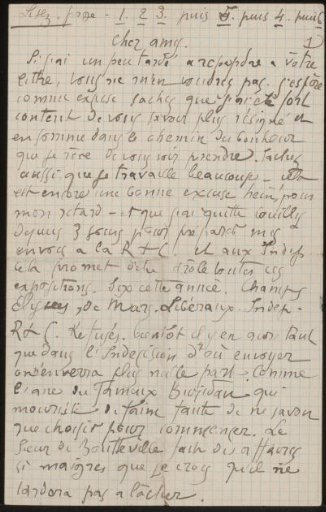 Lisez page - 1. 2 3. puis 5. puis 4. puis
Cher ami. 1
Si j'ai un peu tardé a repondre a votre
lettre, vous ne m'en voudrez pas. j'espère
comme excuse sachez que j'ai été fort
content de vous savoir plus résigné et
en somme dans le chemin du bonheur
que je rêve de vous voir prendre. Sachez
aussi que je travaille beaucoup -
est encore une bonne excuse hein, pour
mon retard - et que j'ai quitté
depuis 3 jours pour préparer mes
envois a la R + C. et aux Indep
cela promet d'être drôle toutes ces
expositions. Six cette année. Champs
Elysées, de Mars. Libéraux. Indep.
R+C. Refusés. bientôt il y en aura tant
que dans l'indecision d'où envoyer
on n'enverra plus nulle part. Comme
l'âne du fameux Buridan qui
mourut de faim faute de ne savoir
que choisir pour commencer. Le
Sieur de Boutteville fait des affaires
si maigres que je crois qu'il ne
tardera pas a lâcher.